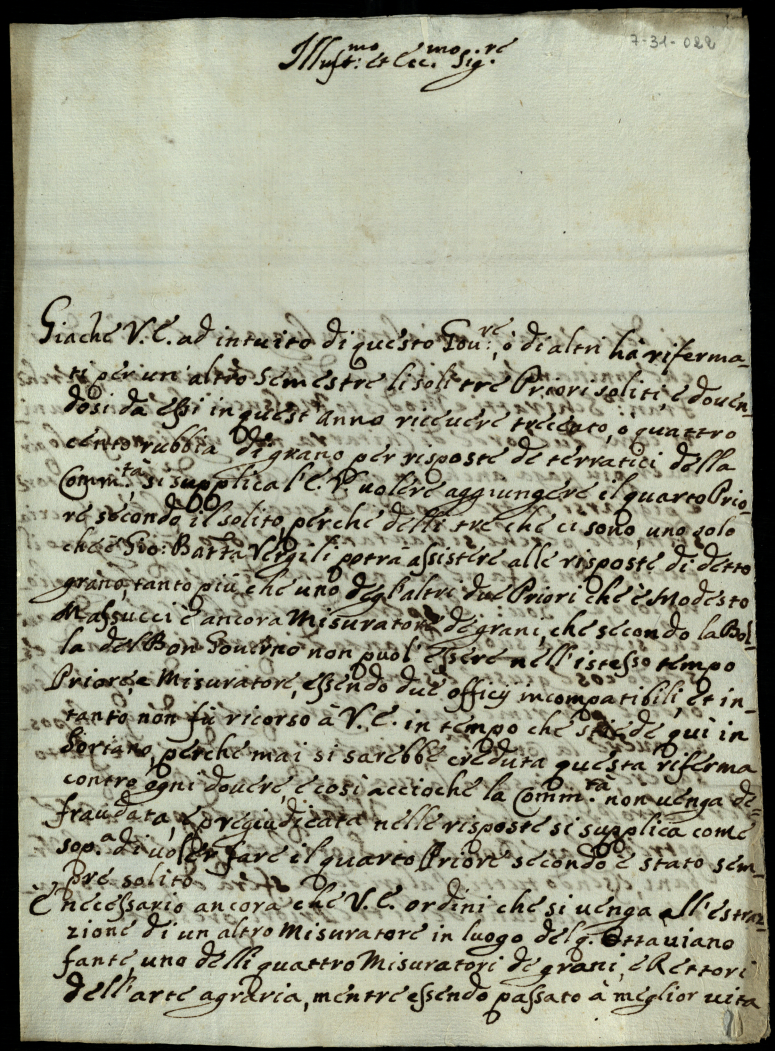 7-31-022
Illust:mo et Ecc:mo Sig:re
Giache V. E. ad intuito di questo Gov:re, ò di altri hà riferma-
ti per un' altro semestre li soli tre Priori soliti, e doven-
dosi dà essi in quest' anno ricevere trecento, ò quattro
cento rubbia di grano per risposte de terratici della
Comm:tà si supplica l' E. V. volere aggiungere il quarto Prio-
re secondo il solito, perche delli tre che ci sono, uno solo
che è Gio: Batta Vergili potrà assistere alle risposte di detto
grano, tanto più che uno degl' altri due Priori che è Modesto
Massucci è ancora Misuratore de grani, che secondo la Bol-
la del Bon Governo non puol' essere nell' istesso tempo
Priore, e Misuratore, essendo due officij incompatibili, et in-
tanto non fù ricorso à V. E. in tempo che stiede quì in
Gortano, perche mai si sarebbe creduta questa riferma
contro ogni dovere e così accioche la Comm:tà non venga de-
fraudata, e pregiudicata nelle risposte si supplica come
sop:a di voler fare il quarto Priore secondo è stato sem-
pre solito
È necessario ancora che V. E. ordini che si venga all' estra-
zione di un altro Misuratore in luogo del q. Ottaviano
fante, uno delli quattro Misuratori de grani, e Rettori
dell' arte agraria, mentre essendo passato à meglior vita